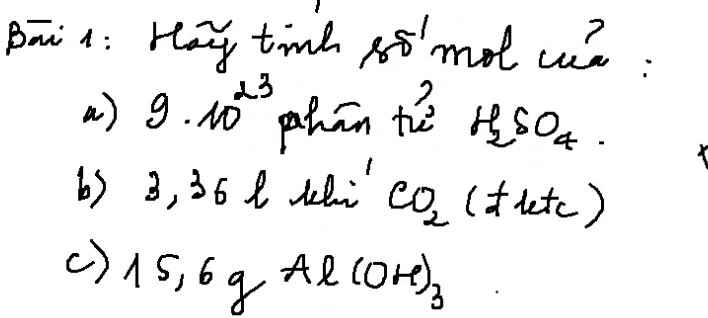 Bài 1: Hãy tính số mol của :
a) 9.10²³ phân tử H₂SO₄.
b) 3,36 l khí CO₂ (đktc)
c) 15,6 g Al(OH)₃